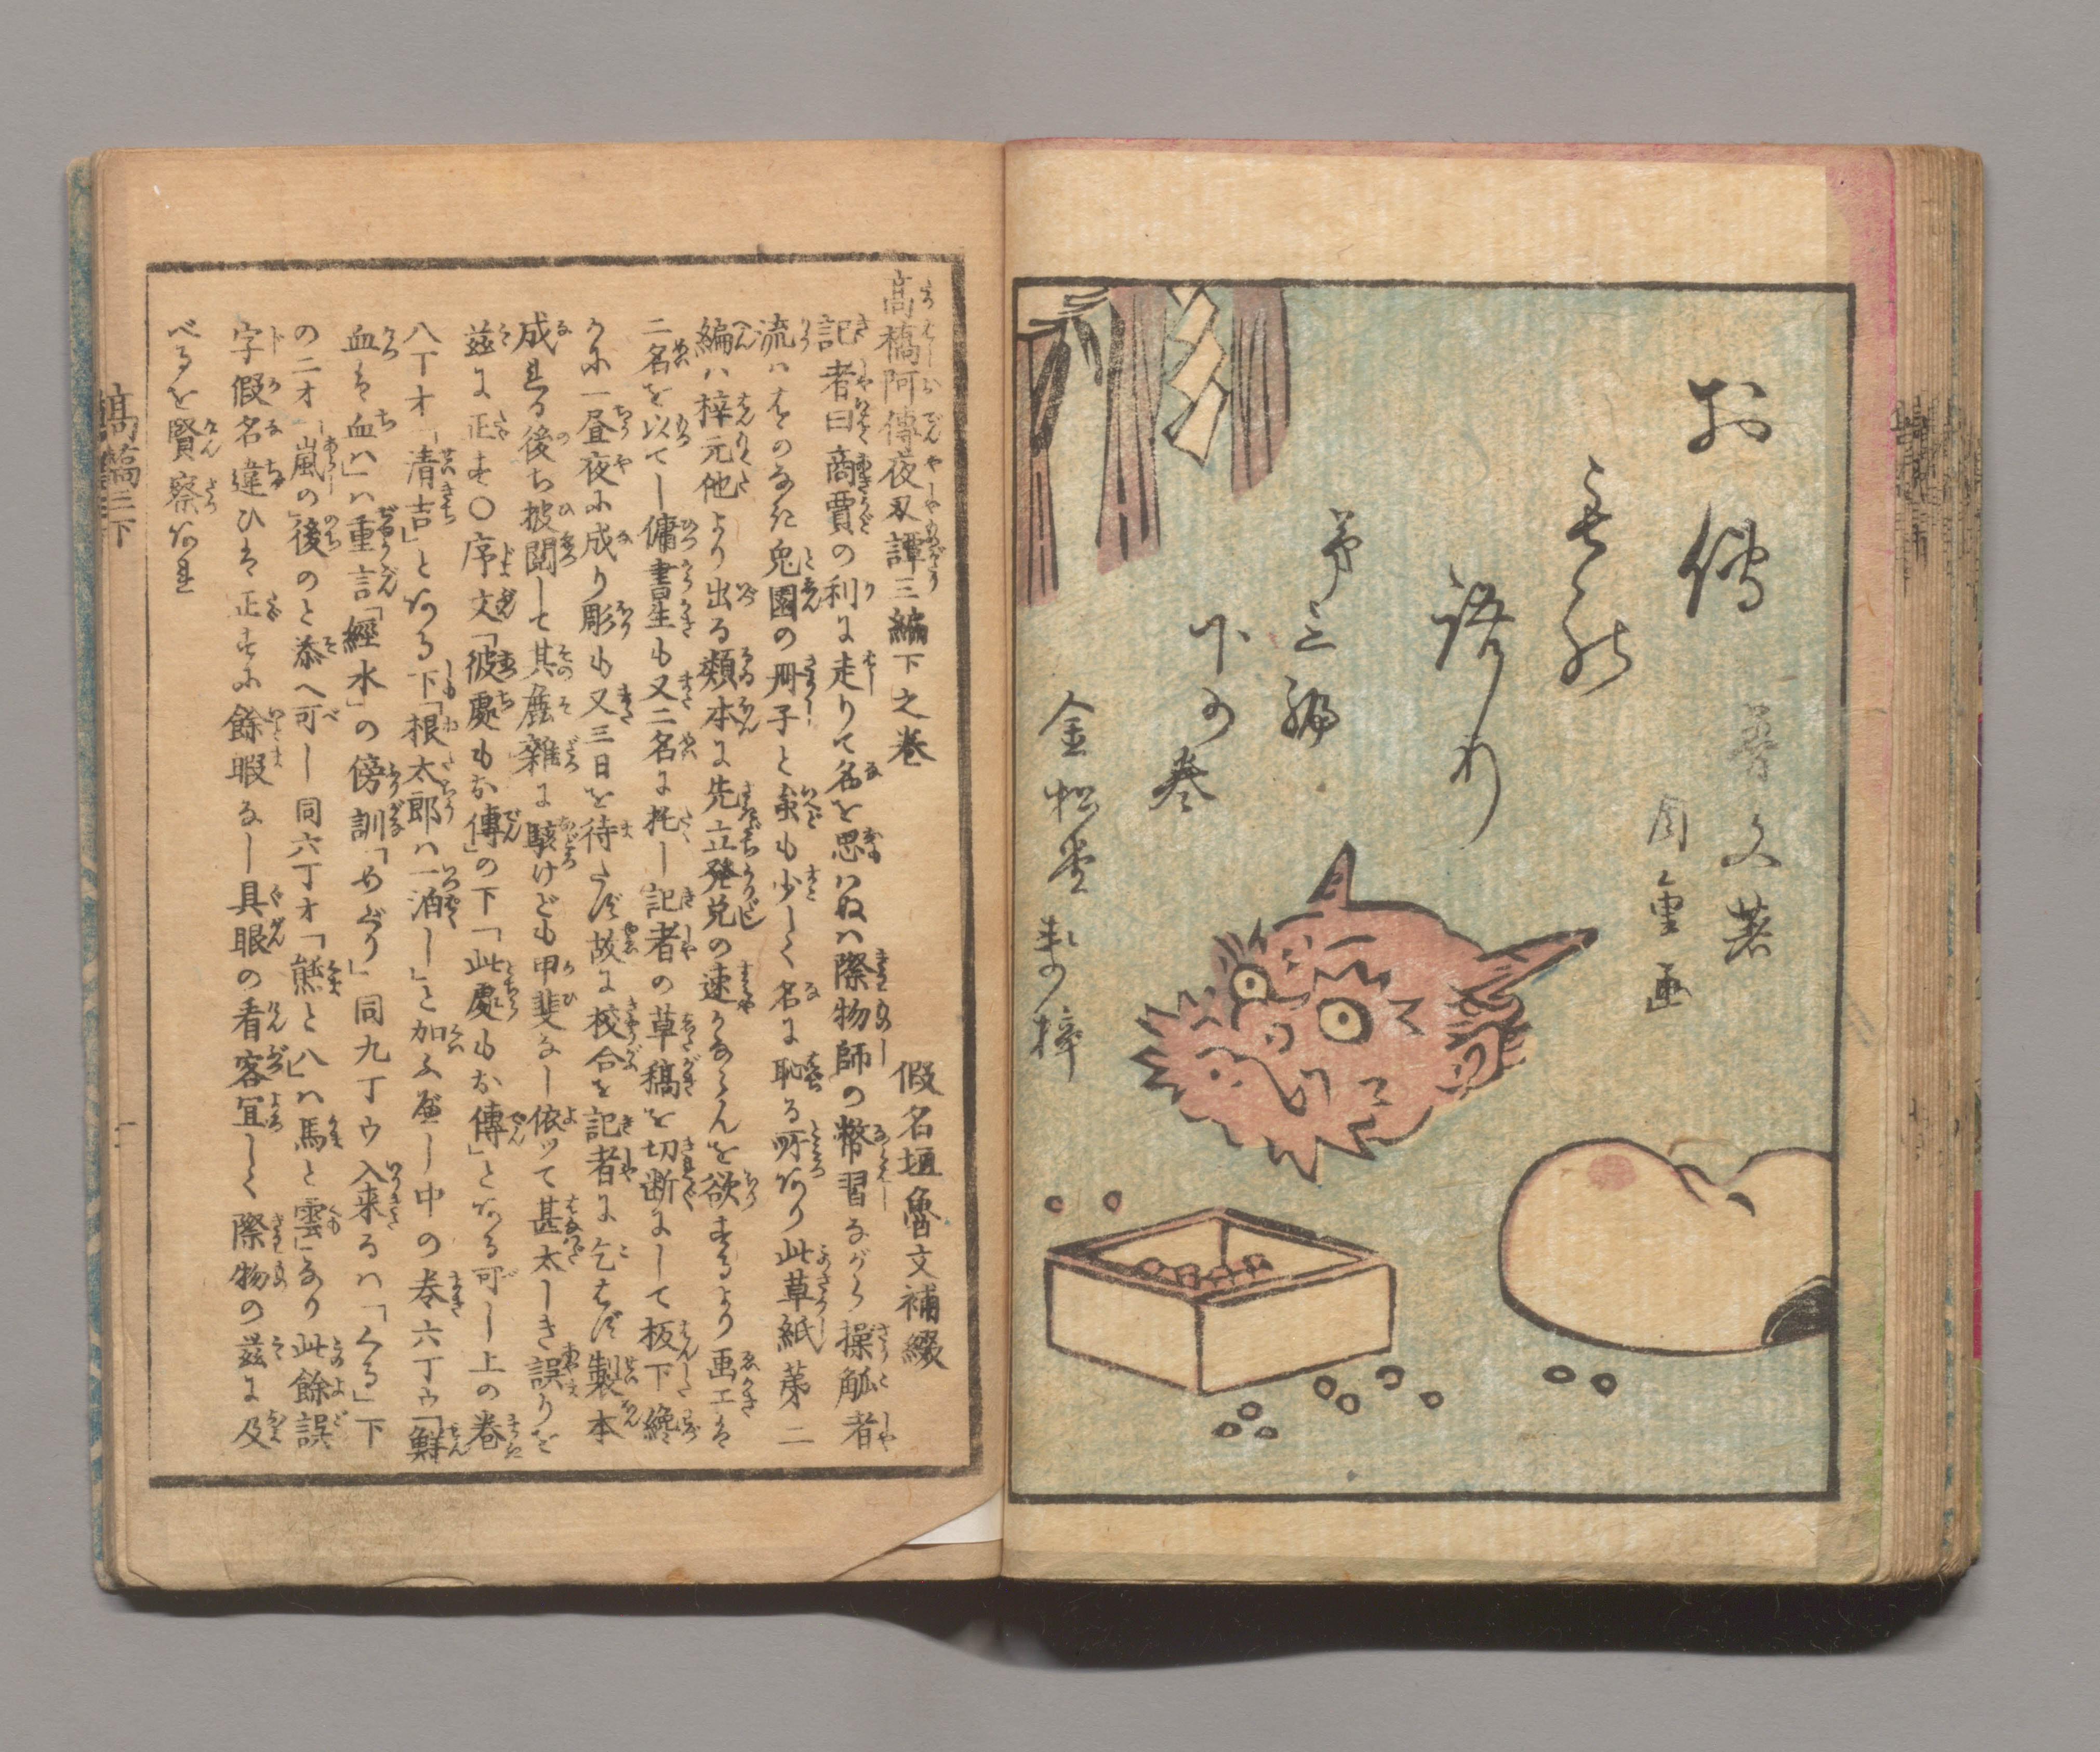 お傳
語り
第三編
下の巻
魯文著
周重画
金松堂
高橋阿傳夜刃譚三編下之巻
假名垣魯文補綴
記者曰商賈の利に走りて名を思はぬハ際物師の幣習ながら操觚者
流ハその

なき兎園の冊子と雖も少しく名に恥る所あり此草紙第二
編ハ梓元他より出る類本に先立発兌の速かならんを欲するより画工を
二名を以てし傭書生も又二名に托し記者の草稿を切断にして板下纔
かに一昼夜に成り彫も又三日を待たず故に校合を記者に乞はず製本
成れる後ち披閲して其麁雑に駭けども甲斐なし依ッて甚太しき誤りを
茲に正す〇序文「彼處もお傳」の下「此處もお傳」とある可し上の巻
八丁オ「清吉」とある下「根太郎ハ一泊し」と加ふ可し中の巻六丁ウ「鮮
血を血ハ」ハ重言「經水」の傍訓「めぐり」同九丁ウ入来るハ「くる」下
の二オ「嵐の」後のと添へ可し同六丁オ「熊と八」ハ馬と雲」なり此餘誤
字假名違ひを正すに餘暇なし具眼の看客宜しく際物の茲に及
べるを賢察あれ
高橋三下
一